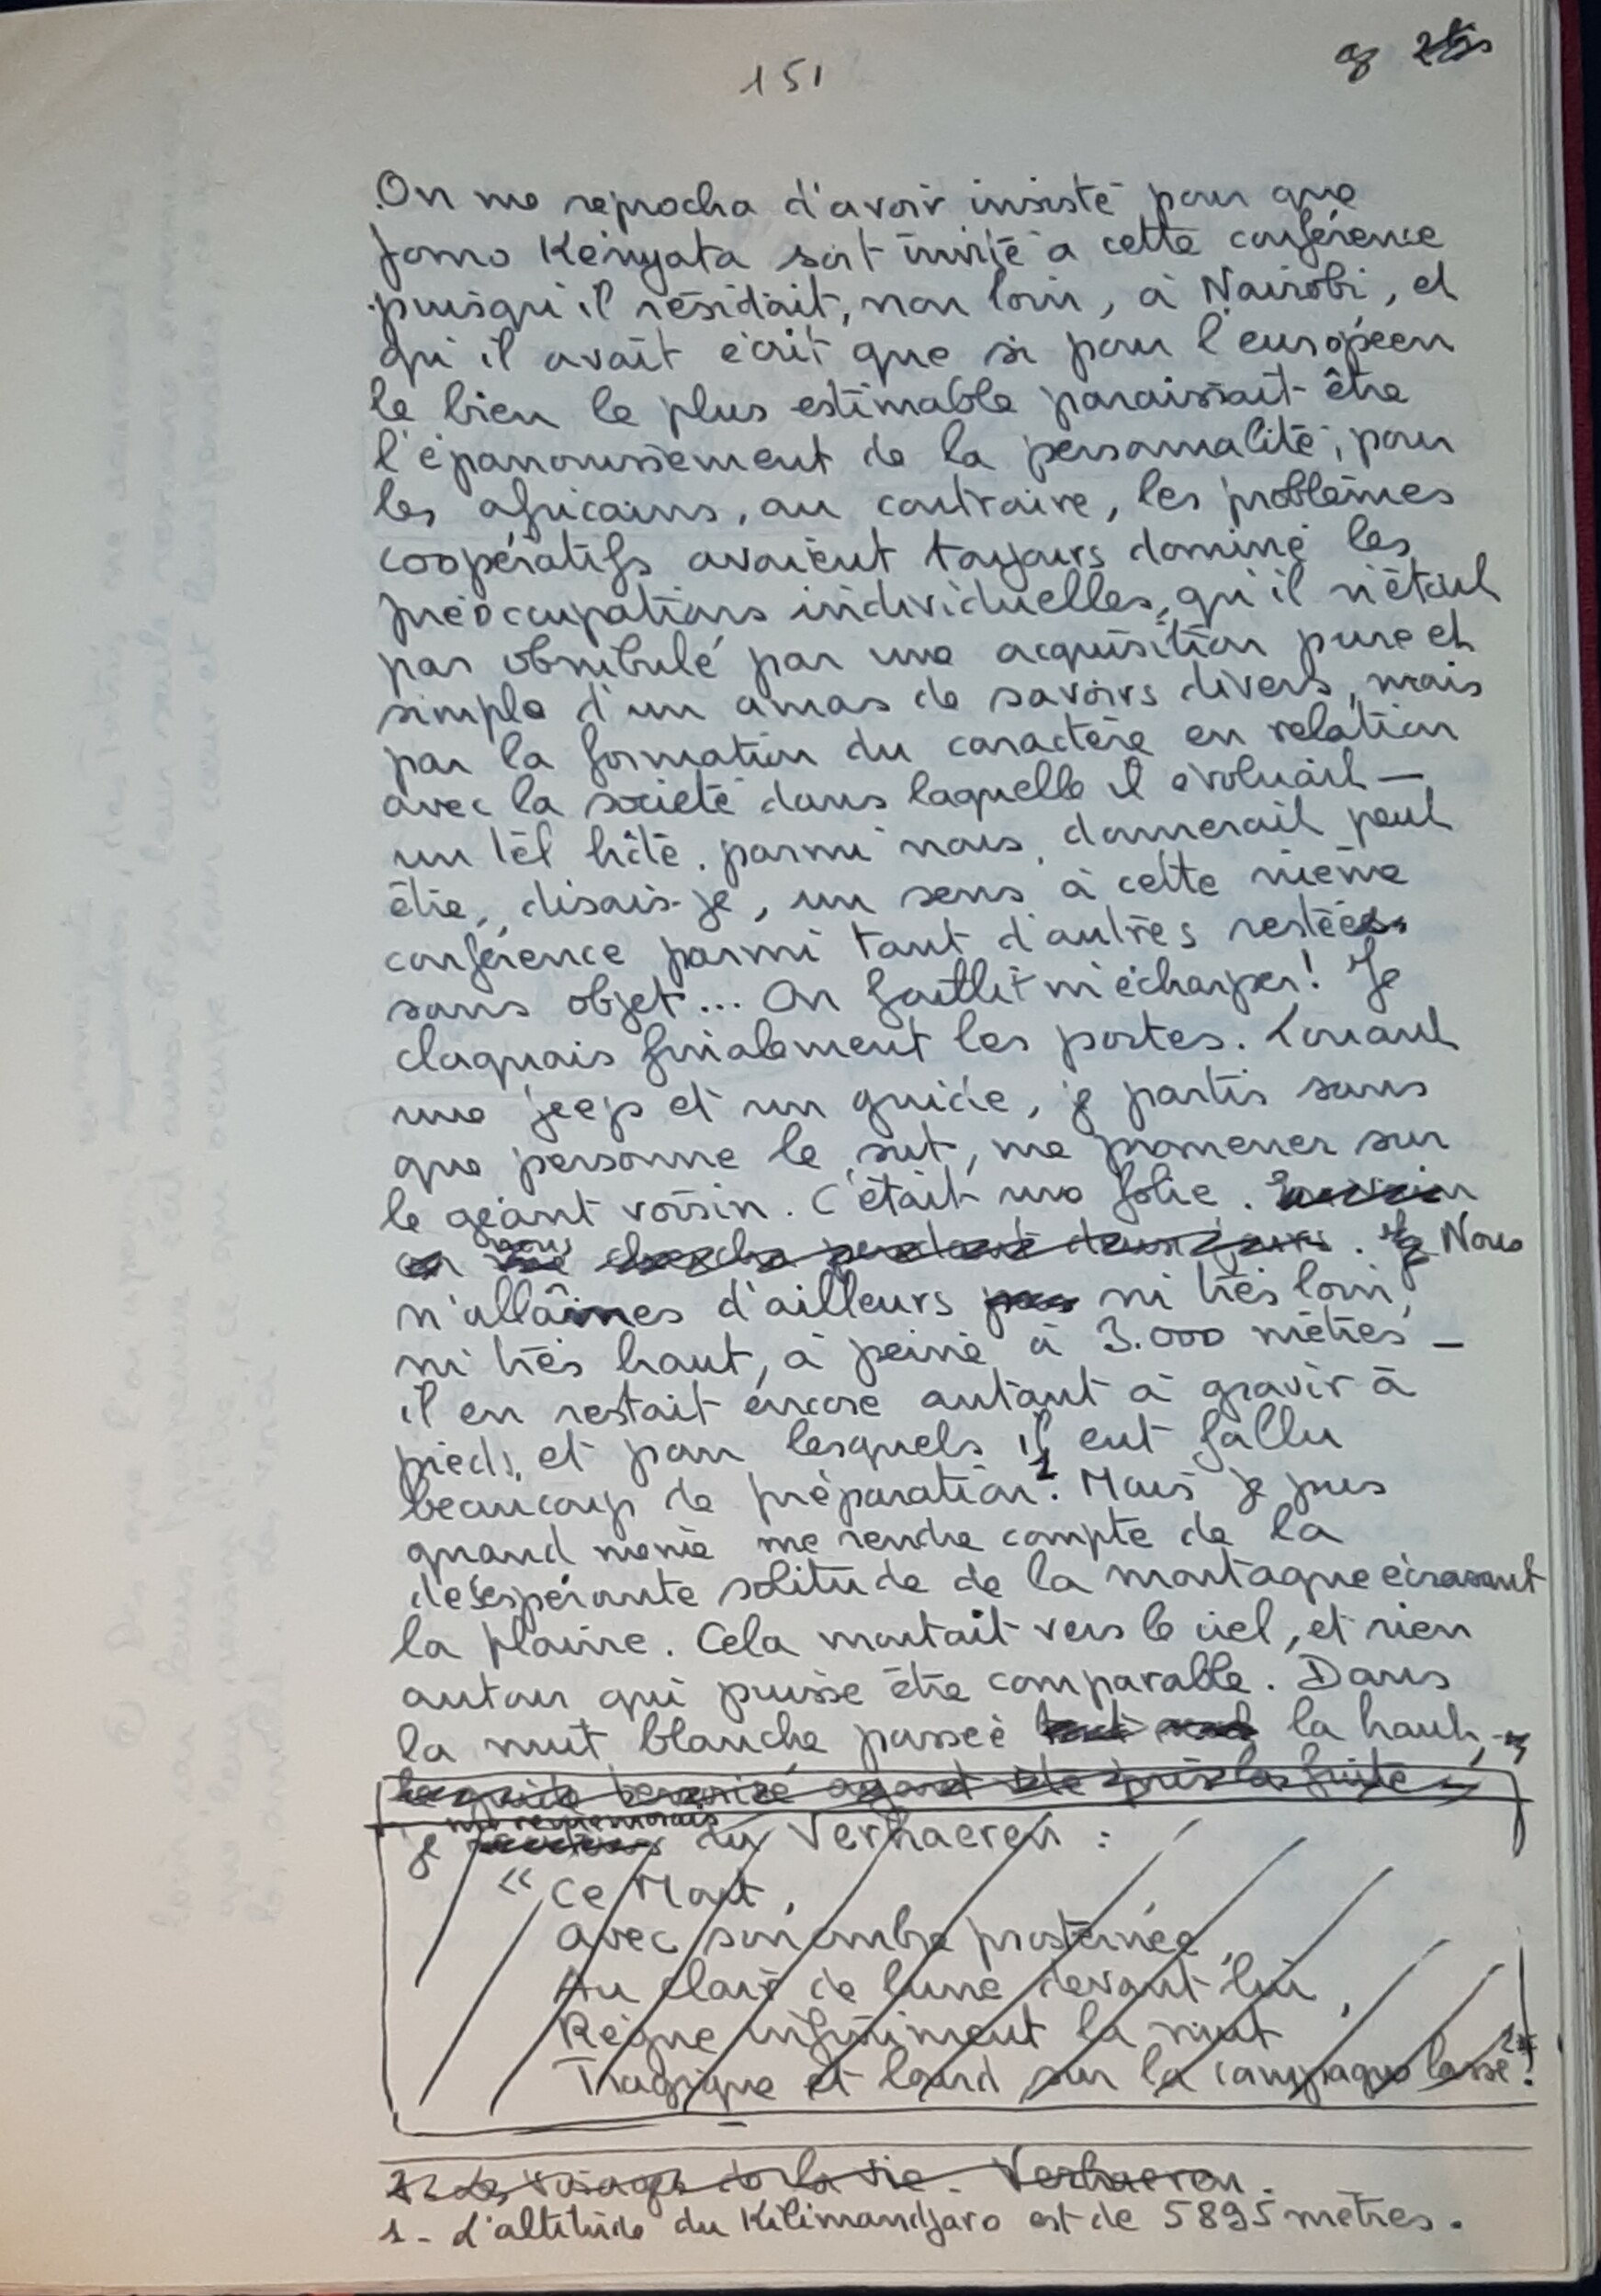 151
On me reprocha d'avoir insisté pour que
Jomo Kényata soit invité à cette conférence
puisqu'il résidait, non loin, à Nairobi, et
qu'il avait écrit que si pour l'européen
le bien le plus estimable paraissait être
l'épanouissement de la personnalité, pour
les africains, au contraire, les problèmes
coopératifs avaient toujours dominé les
préoccupations individuelles, qu'il n'était
pas obnubulé par une acquisition pure et
simple d'un amas de savoirs divers, mais
par la formation du caractère en relation
avec la société dans laquelle il évoluait —
un tel hôte, parmi nous, donnerait peut
être, disais-je, un sens à cette nième
conférence parmi tant d'autres restées
sans objet... On faillit m'écharper! Je
claquais finalement les portes. Louant
une jeep et un guide, je partis sans
que personne le sut, me promener sur
le géant voisin. C'était une folie. En vain
on nous chercha pendant deux jours. Nous
n'allâmes d'ailleurs pas ni très loin,
ni très haut, à peine à 3.000 mètres —
il en restait encore autant à gravir à
pieds, et pour lesquels il eut fallu
beaucoup de préparation 1. Mais je pus
quand même me rendre compte de la
désespérante solitude de la montagne écrasant
la plaine. Cela montait vers le ciel, et rien
autour qui puisse être comparable. Dans
la nuit blanche passée là haut,
le guide terrorisé ayant pris la fuite
je me remémorais du Verhaeren :
« Ce Mont,
Avec son ombre prosternée,
Au clair de lune devant lui,
Règne infiniment la nuit
Tragique et lourd sur la campagne lasse 2!
2 - Les visages de la vie. Verhaeren.
1 - L'altitude du Kilimandjaro est de 5895 mètres.